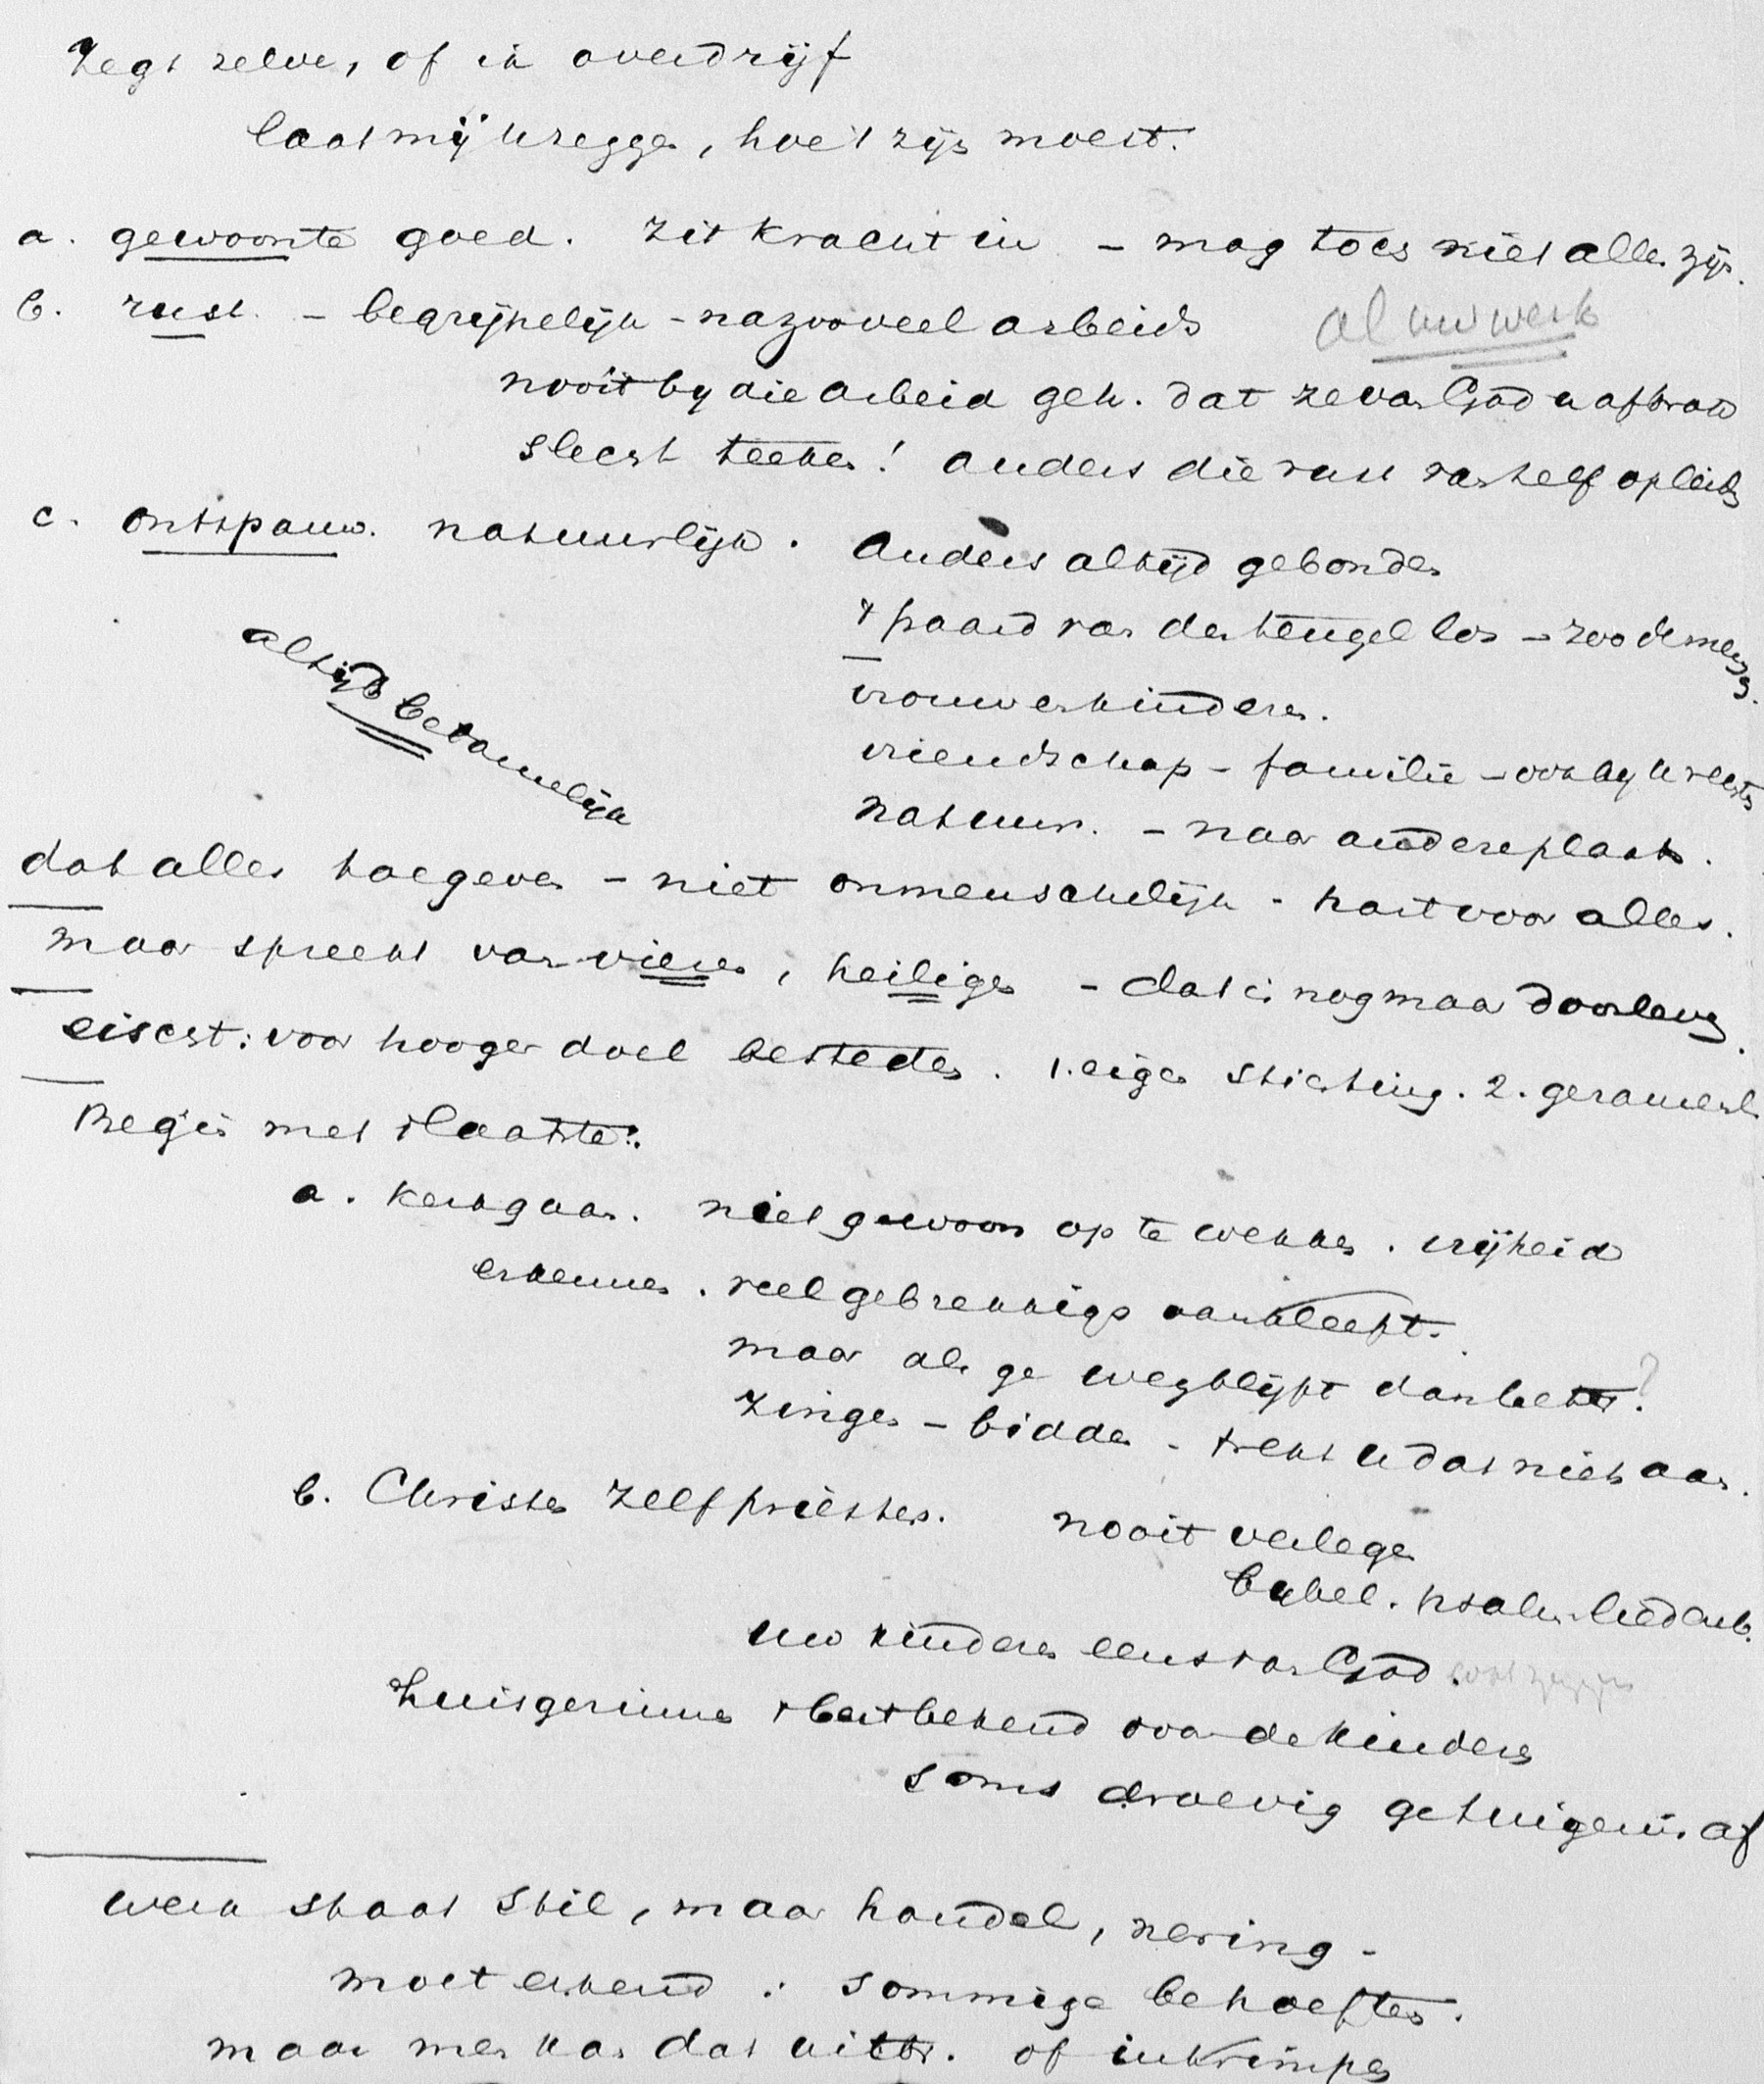 Zegt zelve, of ik overdrijf
laat mij u zeggen, hoe 't zijn moest.
a. gewoonte goed. zit kracht in – mag toch niet alles zijn.
b. rust. – begrijpelijk – na zooveel arbeids al uw werk
nooit by die arbeid geh. dat ze van God u aftrok
slecht teeken! anders die rust vanzelf opleidt
c. ontspann. natuurlijk. Anders altijd gebonden
't paard van den teugel los – zoo de mensch.
vrouw en kinderen.
altijd betamelijk
vriendschap – familie – ook by u slechts
natuur. – naar andere plaats.
dat alles toegeven – niet onmenschelijk – hart voor alles.
maar spreekt van vieren, heiligen – dat is nog maar
eischt: voor hooger doel besteden. 1. eigen stichting. 2. gezamenl.
Begin met 't laatste:
a. kerkgaan. niet gewoon op te wekken. vrijheid
erkennen. veel gebrekkigs aankleeft.
maar als ge wegblijft dan beter?
zingen – bidden – trekt u dat niet aan.
b. Christen zelf priester. nooit verlegen
bybel. psalm. liederb.
uw kinderen eens van God.
huisgezinnen 't best bekend door de kinderen
soms droevig getuigenis af
werk staat stil, maar handel, nering –
moet erkend: sommige behoeften.
maar men kan dat uitbr. of inkrimpen